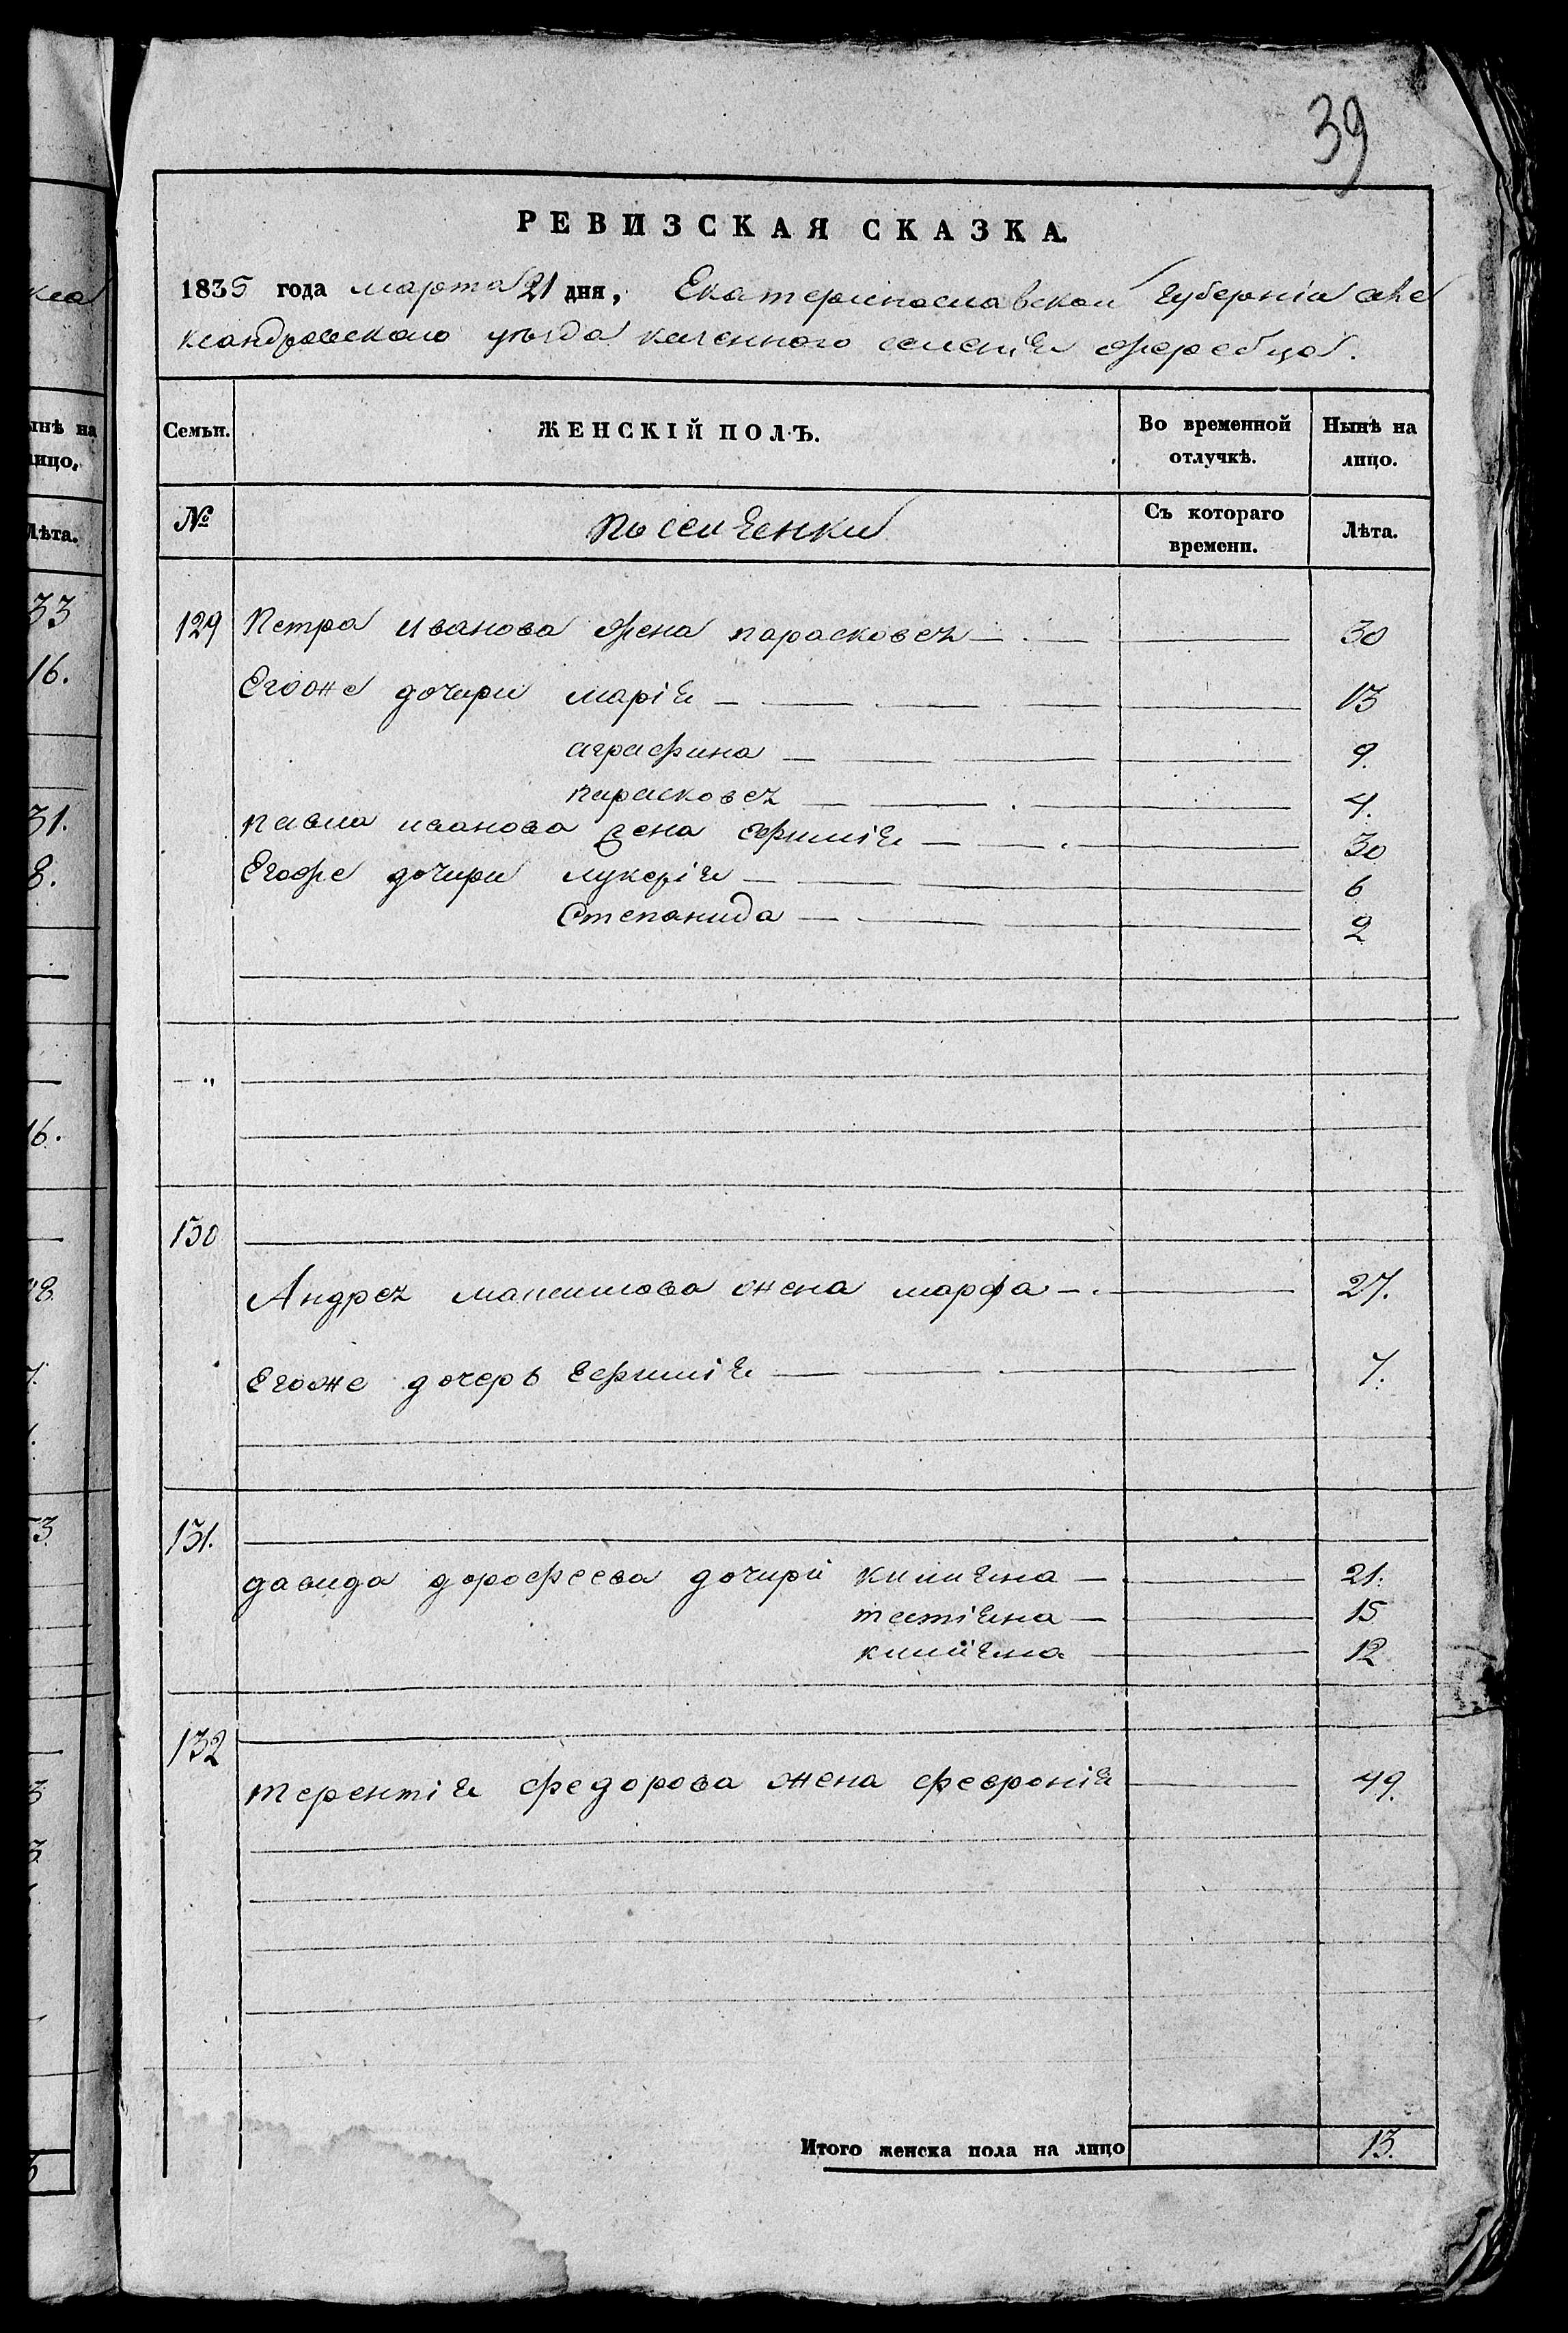 39
РЕВИЗСКАЯ СКАЗКА.
1835 года марта 21 дня, Екатеринославской губерніи але
ксандровского уѣзда казенного селенія жеребца.
Семьи. ЖЕНСКІЙ ПОЛЪ. Во временной отлучкѣ. Нынѣ на лицо.
№ поселенки Съ котораго времени. Лѣта.
129 Петра иванова жена парасковея 30
Егоже дочери марія 13
аграфина 9.
парасковея 4.
павла иванова жена ефимія 30
Егоже дочери лукерія 6
Степанида 2
130
Андрея максимова жена марфа 27.
Егоже дочерь Ефимія 7.
131.
давида дорофеева дочери 21.
татіяна 15
12
132
терентія федорова жена феоронія 49.
Итого женска пола на лицо 13.
кла
ынѣ на
лицо.
Лѣта.
33
16.
31.
8.
16.